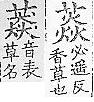 必遥反
香草也
音表
草名